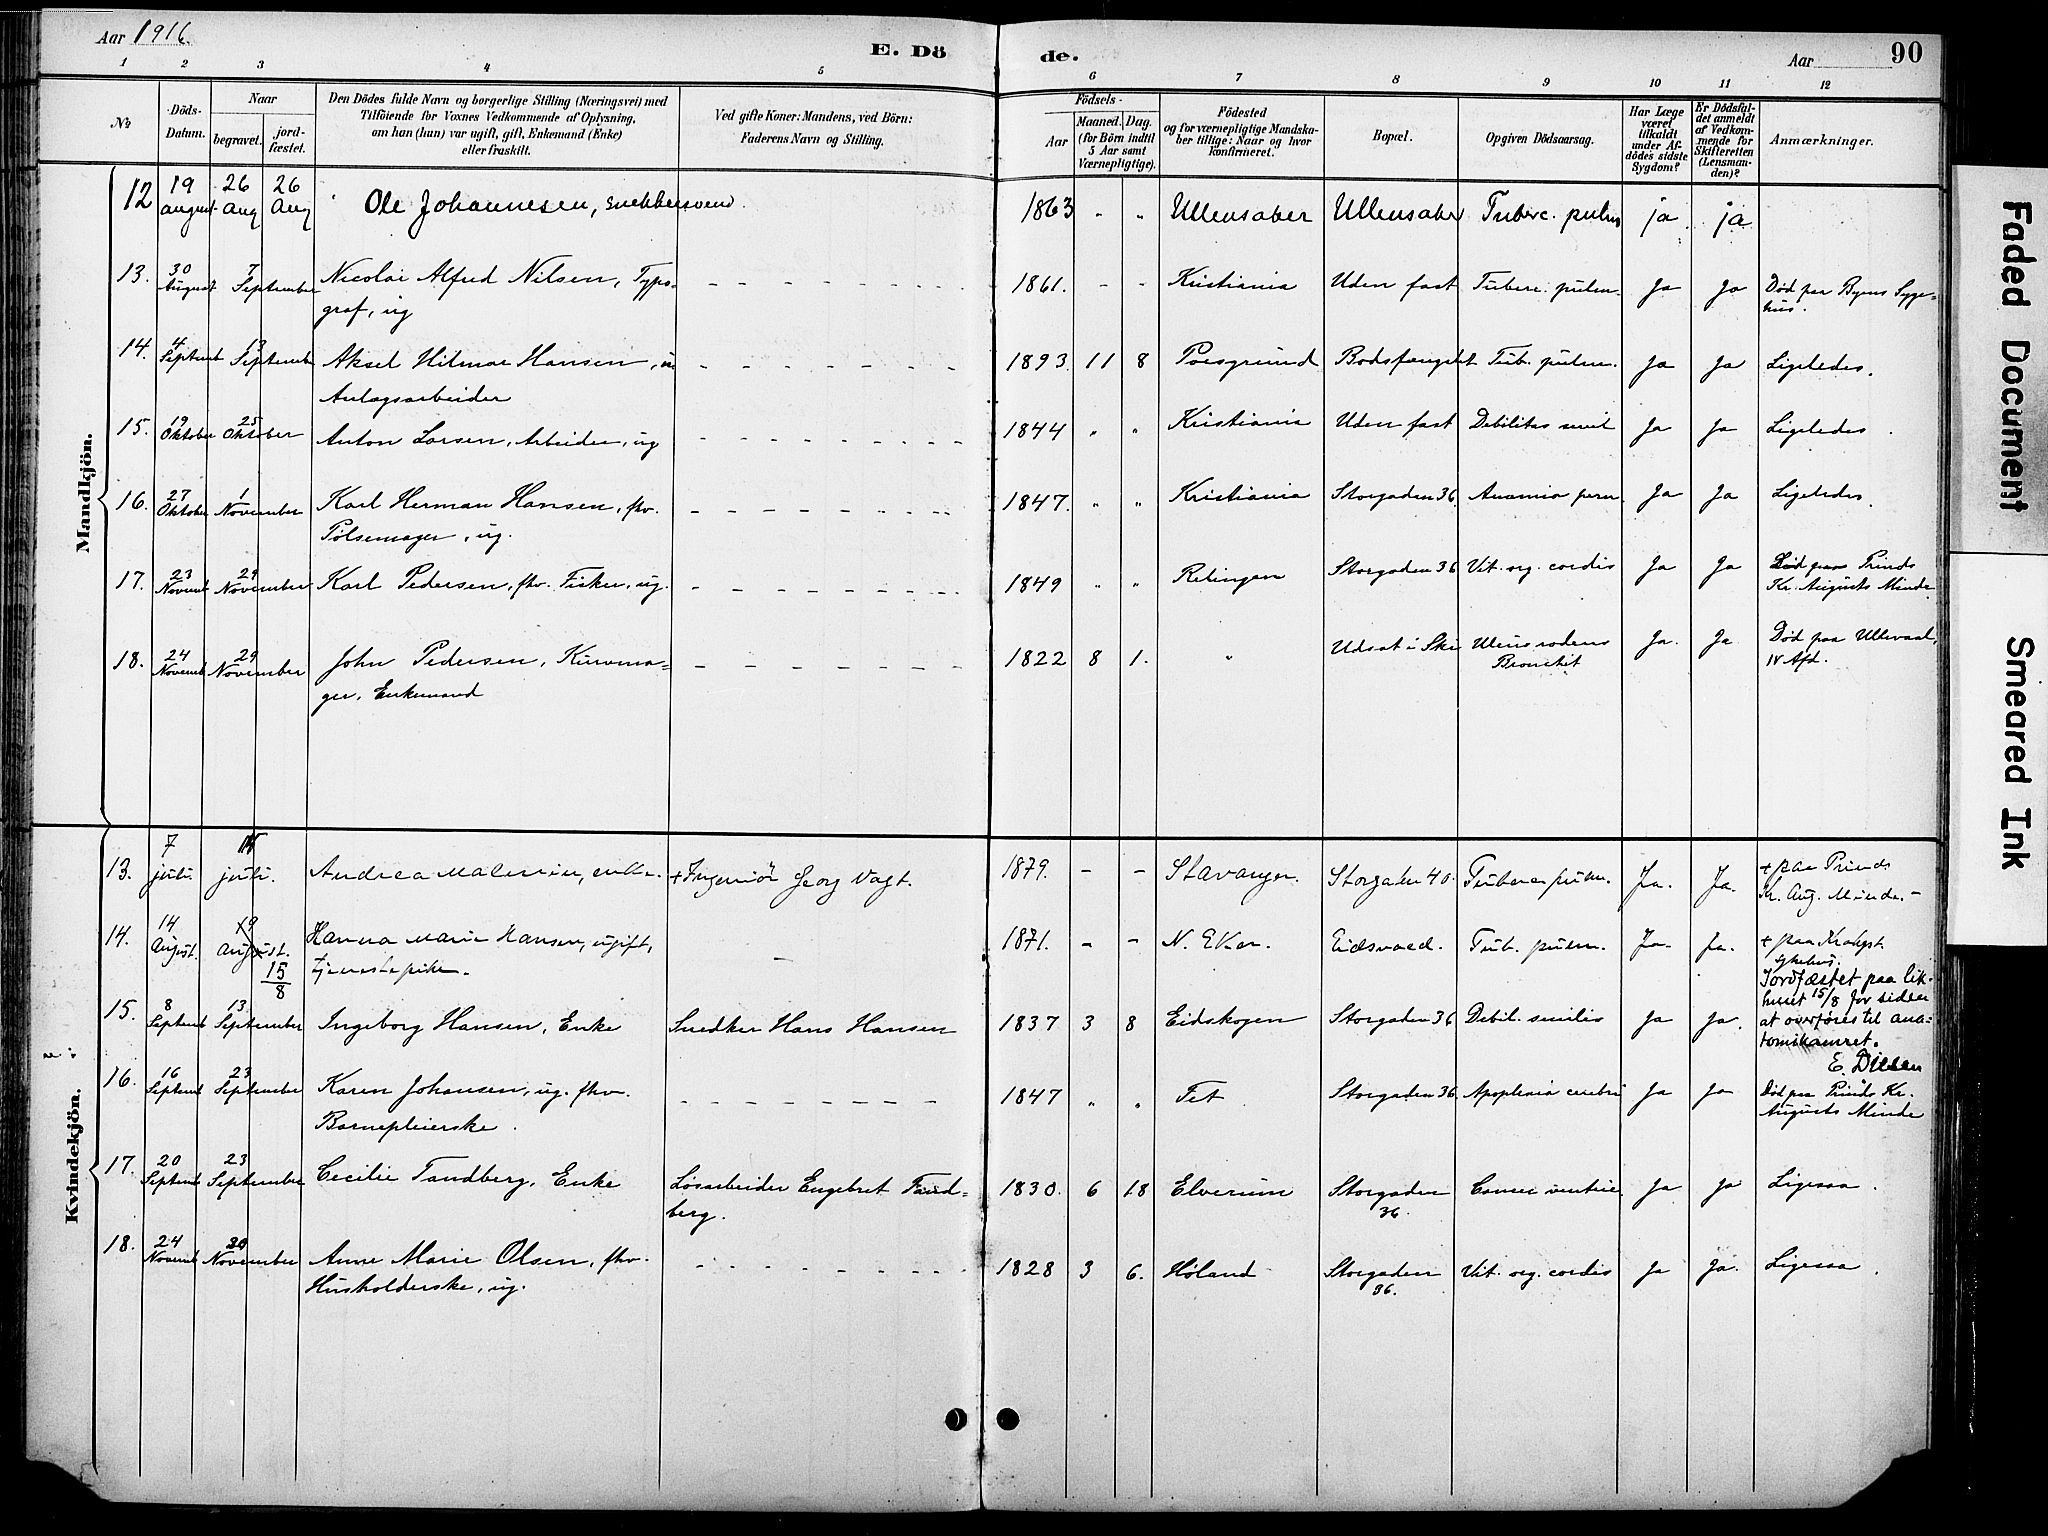 Aar 1916.
E. Dö de.
Aar 90
1 2 3 4 5 6 7 8 9 10 11 12
No
Döds-Datum.
Naar
begravet.
jord-fæstet.
Den Dödes fulde Navn og borgerlige Stilling (Næringsvei) med
Tilföiende for Voxnes Vedkommende af Oplysning,
om han (hun) var ugift, gift, Enkemand (Enke)
eller fraskilt.
Ved gifte Koner: Mandens, ved Börn:
Faderens Navn og Stilling.
Födsels-
Aar
Maaned. Dag.
(for Börn indtil
5 Aar samt
Værnepligtige).
Födested
og for værnepligtige Mandska-
ber tillige: Naar og hvor
konfirmeret.
Bopæl.
Opgiven Dödsaarsag.
Har Læge
været
tilkaldt
under Af-
dödes sidste
Sygdom?
Er Dödsfal-
det anmeldt
af Vedkom-
mende for
Skifteretten
(Lensman-
den)?
Anmærkninger.
Mandkjön.
12 19 august 26 Aug 26 Aug Ole Johannesen, snekkersvend. 1863 " " Ullensaker Ullensaker Tuberc. pulm ja ja
13. 30 August 7 September Nicolai Alfred Nilsen, Typo-
graf, ug 1861. - - Kristiania Uden fast Tuberc. pulm. Ja Ja Død paa Byens Syge-
hus.
14. 4 Septemb 13 September Aksel Hilmar Hansen, u
Anlægsarbeider 1893 11 8 Porsgrund Bodsfængslet Tub. pulm. Ja Ja Ligeledes.
15. 19 Oktober 25 Oktober Anton Larsen, Arbeider, ug 1844 " " Kristiania Uden fast Debilitas senil Ja Ja Ligeledes.
16. 27 Oktober 1 November Karl Herman Hansen, fhv.
Pølsemager, ug. 1847. " " Kristiania Storgaden 36 Anæmia pern. Ja Ja Ligeledes.
17. 23 Novemb 29 November Karl Pedersen, fhv. Fisker, ug. 1849 " " Relingen Storgaden 36 Vit. org. cordis Ja Ja Død paa Prinds
Kr. Augusts Minde
18. 24 Novemb 29 November John Pedersen, Kurvma-
ger, Enkemand 1822 8 1. " Udsat i Ski Ulcus rodens
Bronchit Ja. Ja Død paa Ullevaal,
IV Afd.
Kvindekjön.
13. 7 juli. juli. Andrea enke. + Ingeniør Georg Vogt. 1879. - - Stavanger. Storgaten 40. Tuberc. pulm. Ja. Ja. + paa Prinds
Kr. Aug. Minde. -
14. 14 August. August. 15/8 Hanna Marie Hansen, ugift,
tjenestepike. - 1871. - - N. Eker. Eidsvold. Tub. pulm. Ja. Ja. + paa Krohgst.
sykehus.
Jordfæstet paa lik-
huset 15/8 for siden
at overføres til ana-
tomikamret.
E. Diesen
15. 8 Septemb 13 September Ingeborg Hansen, Enke Snedker Hans Hansen 1837 3 8 Eidskogen Storgaden 36 Debil. senilis Ja Ja.
16. 16 Septemb 23 September Karen Johansen, ug. fhv.
Barnepleierske. 1847 " " Fet Storgaden 36 Apoplexia cerebri Ja Ja Død paa Prinds Kr.
Augusts Minde
17. 20 Septemb 23 September Cecilie Tandberg, Enke Løsarbeider Engebret Tand-
berg. 1830. 6 18 Elverum Storgaden
36. Cancer ventric Ja Ja Ligesaa.
18. 24 Novemb 30 November Anne Marie Olsen, fhv.
Husholderske, ug. 1828 3 6. Høland Storgaden
36. Vit. org. cordis Ja Ja. Ligesaa.
Faded Document
Smeared Ink